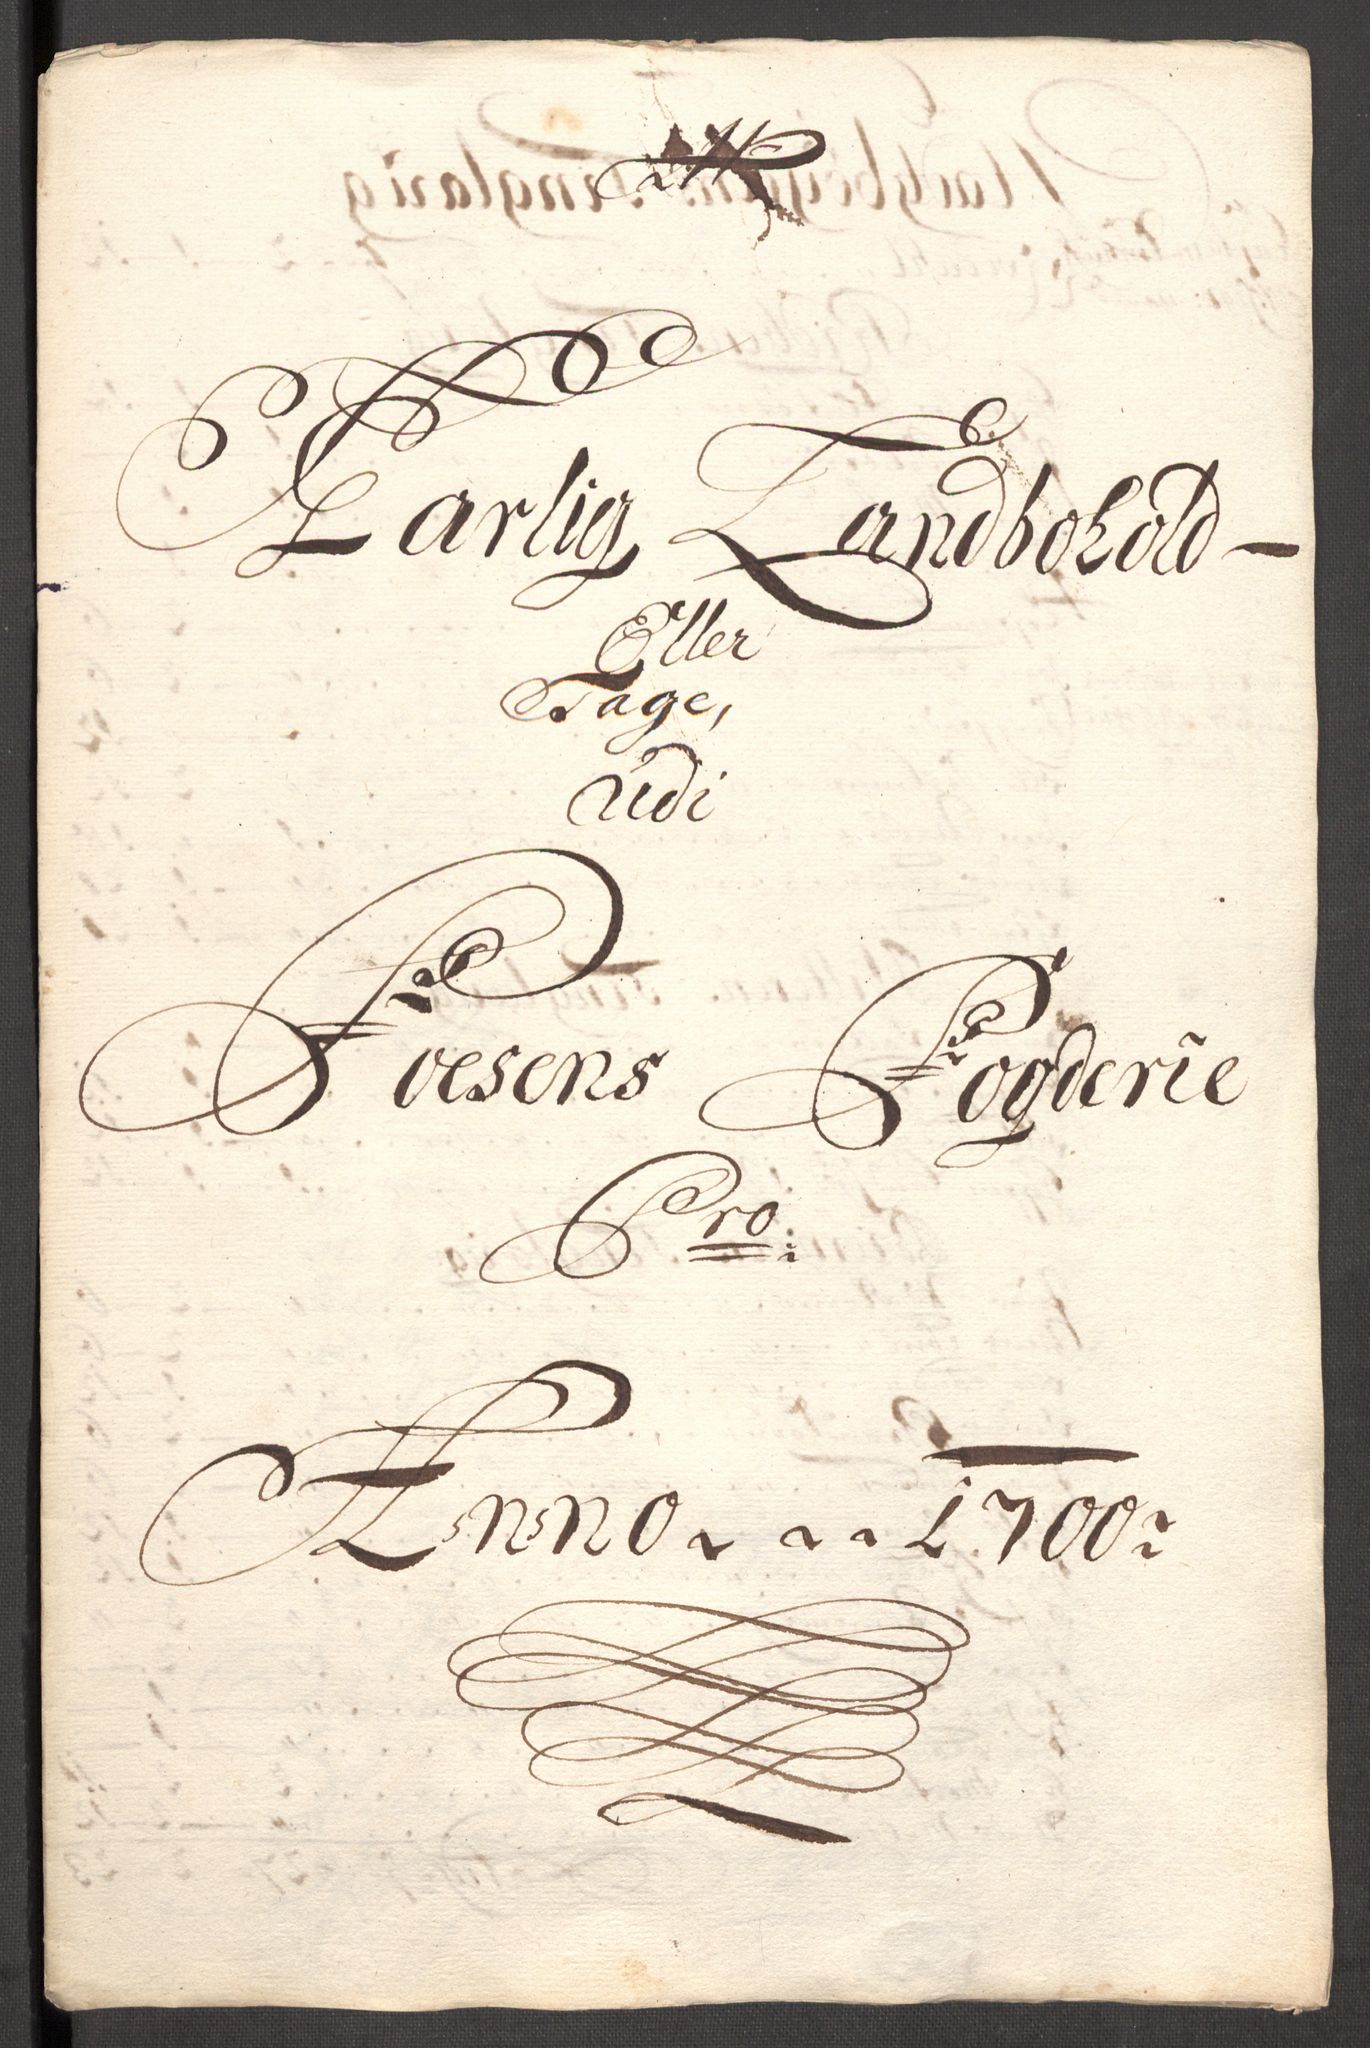 Aarlig Landbohold-
Eller
Tage,
Udi
Foesens Fogderie
Pro:
Anno 1700